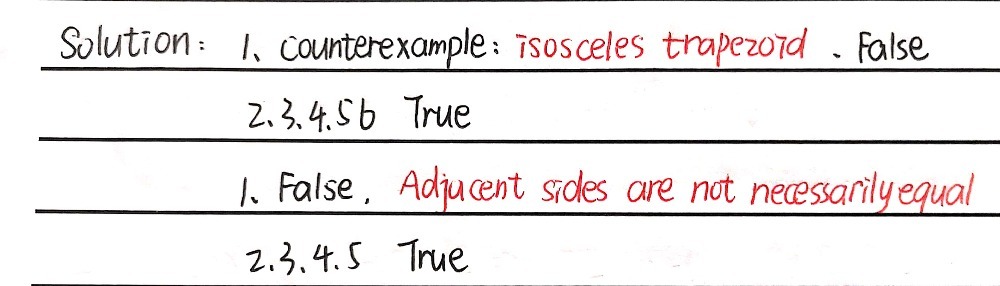 Solution: 1. counterexample: isosceles trapezoid . False
2.3.4.5 6 True
1. False. Adjucent sides are not necessarily equal
2.3.4.5 True